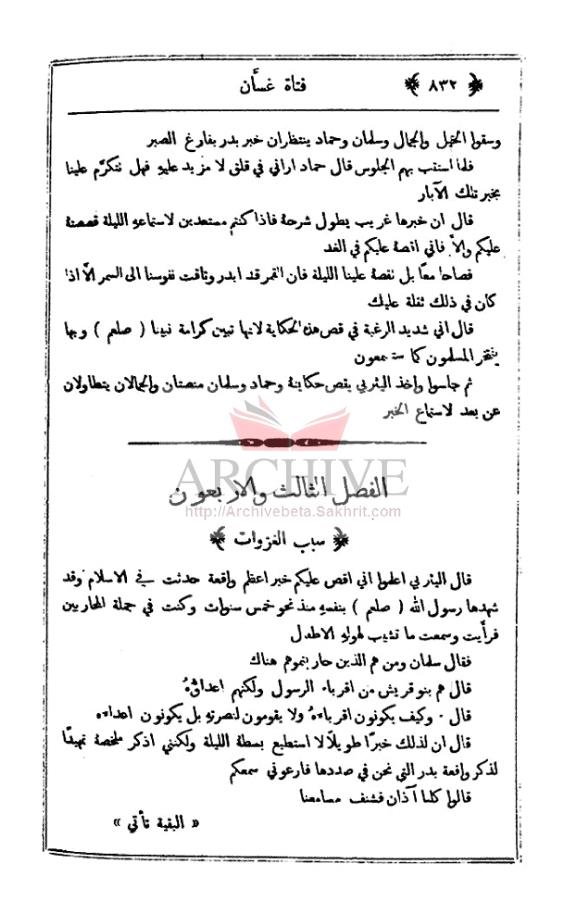 ﴿ ٨٣٢ ﴾ فتاة غسَّان
وسقوا الخيل والجمال وسلمان وحماد ينتظران خبر بدر بفارغ الصبر
فلما استتب بهم الجلوس قال حماد اراني في قلق لا مزيد عليهِ فهل تتكرَّم علينا
بخبر تلك الآبار
قال ان خبرها غريب يطول شرحهُ فاذا كنتم مستعدين لاستماعهِ الليلة قصصتهُ
عليكم والاَّ فاني اقصهُ عليكم في الغد
فصاحا معاً بل نقصهُ علينا الليلة فان القمر قد ابدر وتاقت نفوسنا الى السمر الاَّ اذا
كان في ذلك ثقلة عليك
قال اني شديد الرغبة في قص هذه الحكاية لانها تبين كرامة نبينا ( صلعم ) وبها
يفتخر المسلمون كما ستسمعون
ثم جلسوا واخذ اليثربي يقص حكايتهُ وحماد وسلمان منصتان والجمالان يتطاولان
عن بعد لاستماع الخبر
ARCHIVE
http://Archivebeta.Sakhrit.com
الفصل الثالث والاربعون
﴿ سبب الغزوات ﴾
قال اليثربي اعلموا اني اقص عليكم خبر اعظم واقعة حدثت في الاسلام وقد
شهدها رسول الله ( صلعم ) بنفسهِ منذ نحو خمس سنوات وكنت في جملة المحاربين
فرأيت وسمعت ما تشيب لهولهِ الاطفال
فقال سلمان ومن هم الذين حاربتموهم هناك
قال هم بنو قريش من اقرباء الرسول ولكنهم اعداؤهُ
قال · وكيف يكونون اقرباءهُ ولا يقومون لنصرتهِ بل يكونون اعداءه
قال ان لذلك خبرًا طويلًا لا استطيع بسطهُ الليلة ولكنني اذكر ملخصهُ تمهيدًا
لذكر واقعة بدر التي نحن في صددها فارعوني سمعكم
قالوا كلنا آذان فشنف مسامعنا
« البقية تأتي »